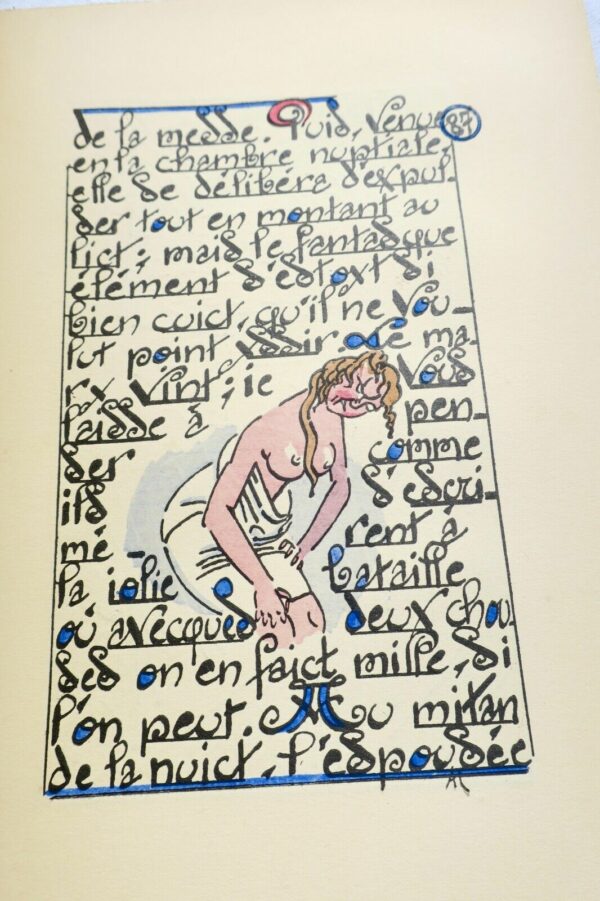 de la messe. Puis, venue 87
en la chambre nuptiale,
elle se délibéra d'expul-
ser tout en montant au
lict ; mais le fantasque
élément s'estoyt si
bien cuict, qu'il ne vou-
lut point yssir. Le ma-
ry vint ; ie vous
laisse à pen-
ser comme
ils s'escri-
mé-rent à
la iolie bataille
où avecques deux cho-
ses on en faict mille, si
l'on peut. Au mitan
de la nuict, l'espousée